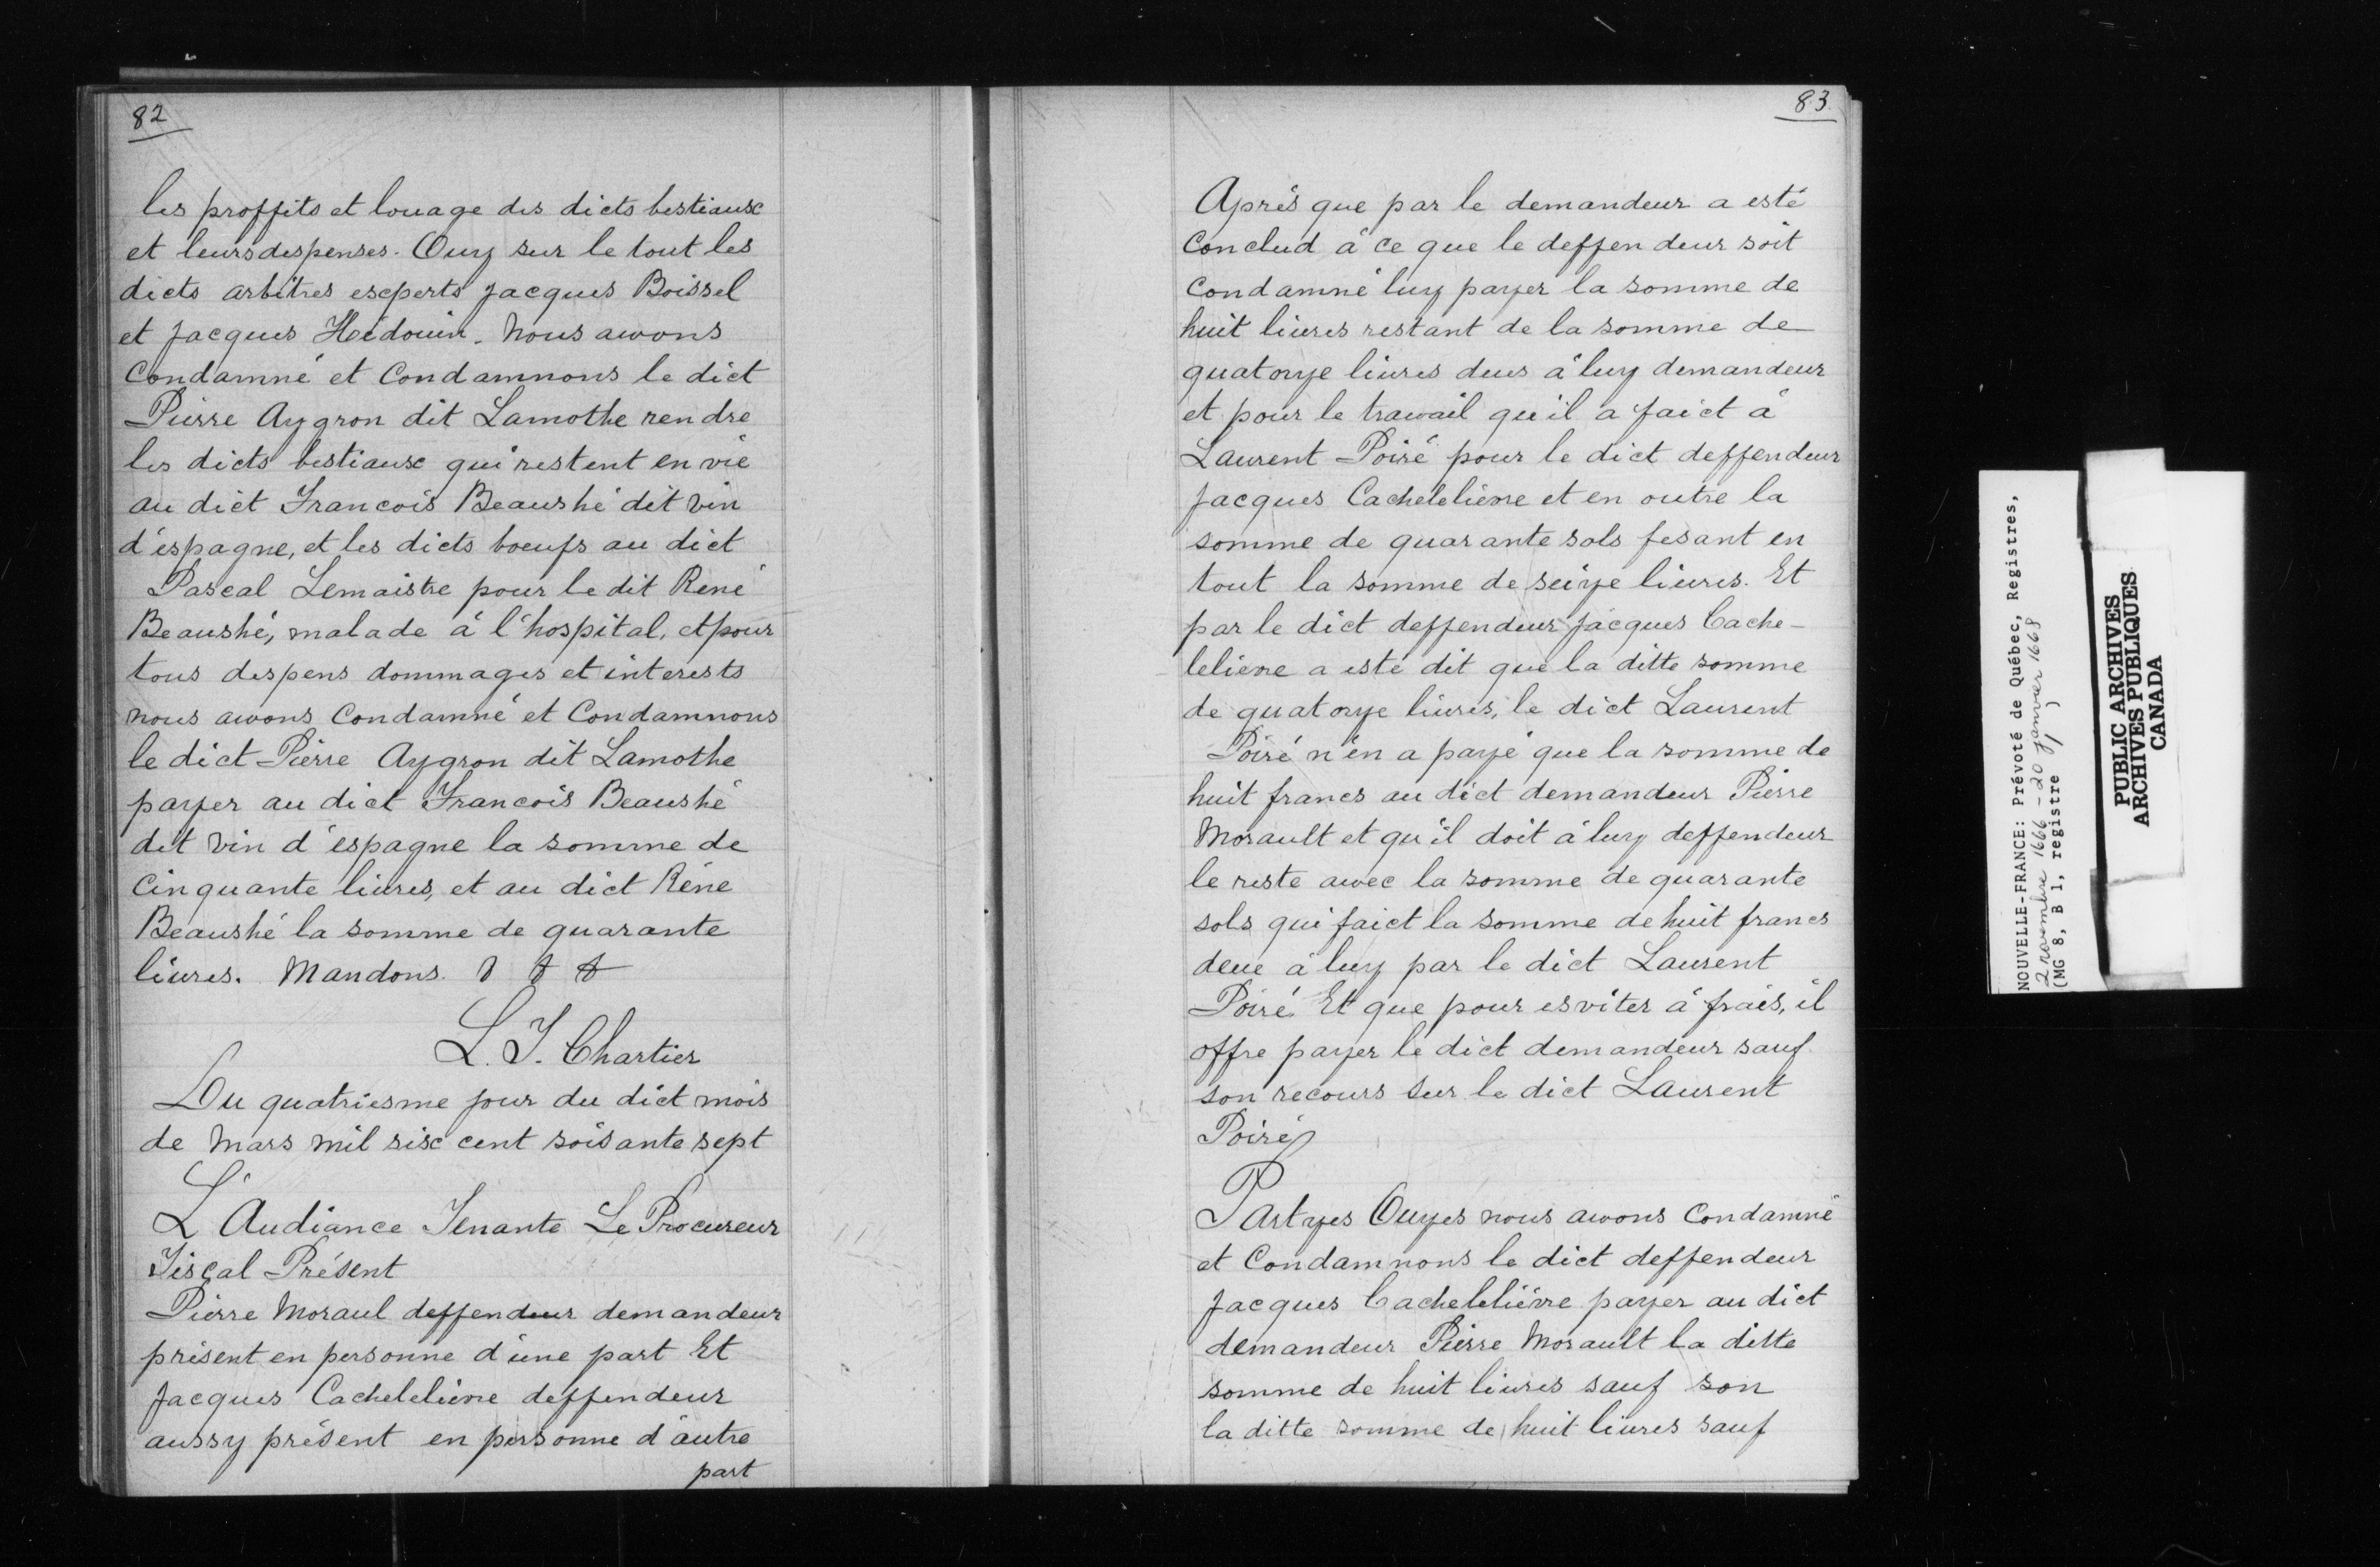 82
les proffits et louage des dicts bestiaux
et leurs despenses. Ouy sur le tout les
dicts arbitres experts Jacques Boissel
et Jacques Hédouin. Nous avvons
Condamné et Condamnons le dict
Pierre Aygron dit Lamothe rendre
les dicts bestiaux qui restent en vie
au dict Francois Beaushé dit vin
d'espagne, et les dicts boeufs au dict
Pascal Lemaistre pour le dit René
Beaushé, malade à l'hospital, et pour
tous despens dommages et interests
nous avvons Condamné et Condamnons
le dict Pierre Aygron dit Lamothe
payer au dict Francois Beaushé
dit vin d'espagne la somme de
Cinquante liures, et au dict Réne
Beaushé la somme de quarante
liures. Mandons
L. T. Chartier
Du quatriesme jour du dict mois
de Mars mil six cent soisante sept
L'Audiance Tenante Le Procureur
Fiscal Présent
Pierre Moraul deffendeur demandeur
présent en personne d'une part Et
Jacques Cachelelievre deffendeur
aussy présent en personne d'autre
part
83.
Après que par le demandeur a esté
Conclud à ce que le deffendeur soit
Condamné luy payer la somme de
huit liures restant de la somme de
quatorze liures deus à luy demandeur
et pour le travvail qu'il a faict à
Laurent Poiré pour le dict deffendeur
Jacques Cachelelièvre et en outre la
somme de quarante sols fesant en
tout la somme de seize liures. Et
par le dict deffendeur Jacques Cache-
lelievre a esté dit que la ditte somme
de quatorze liures, le dict Laurent
Poiré n'en a payé que la somme de
huit francs au dict demandeur Pierre
Morault et qu'il doit à luy deffendeur
le reste avvec la somme de quarante
sols qui faict la somme de huit francs
deue à luy par le dict Laurent
Poiré Et que pour esviter à frais, il
offre payer le dict demandeur sauf
son recours sur le dict Laurent
Poiré
Partyes Ouyes nous avvons Condamné
et Condamnons le dict deffendeur
Jacques Cachelelièvre payer au dict
demandeur Pierre Morault la ditte
somme de huit liures sauf son
la ditte somme de huit liures sauf
NOUVELLE-FRANCE: Prévoté de Québec, Registres,
2 novembre 1666 - 20 janvier 1668
(MG 8, B 1, registre 1)
PUBLIC ARCHIVES
ARCHIVES PUBLIQUES
CANADA